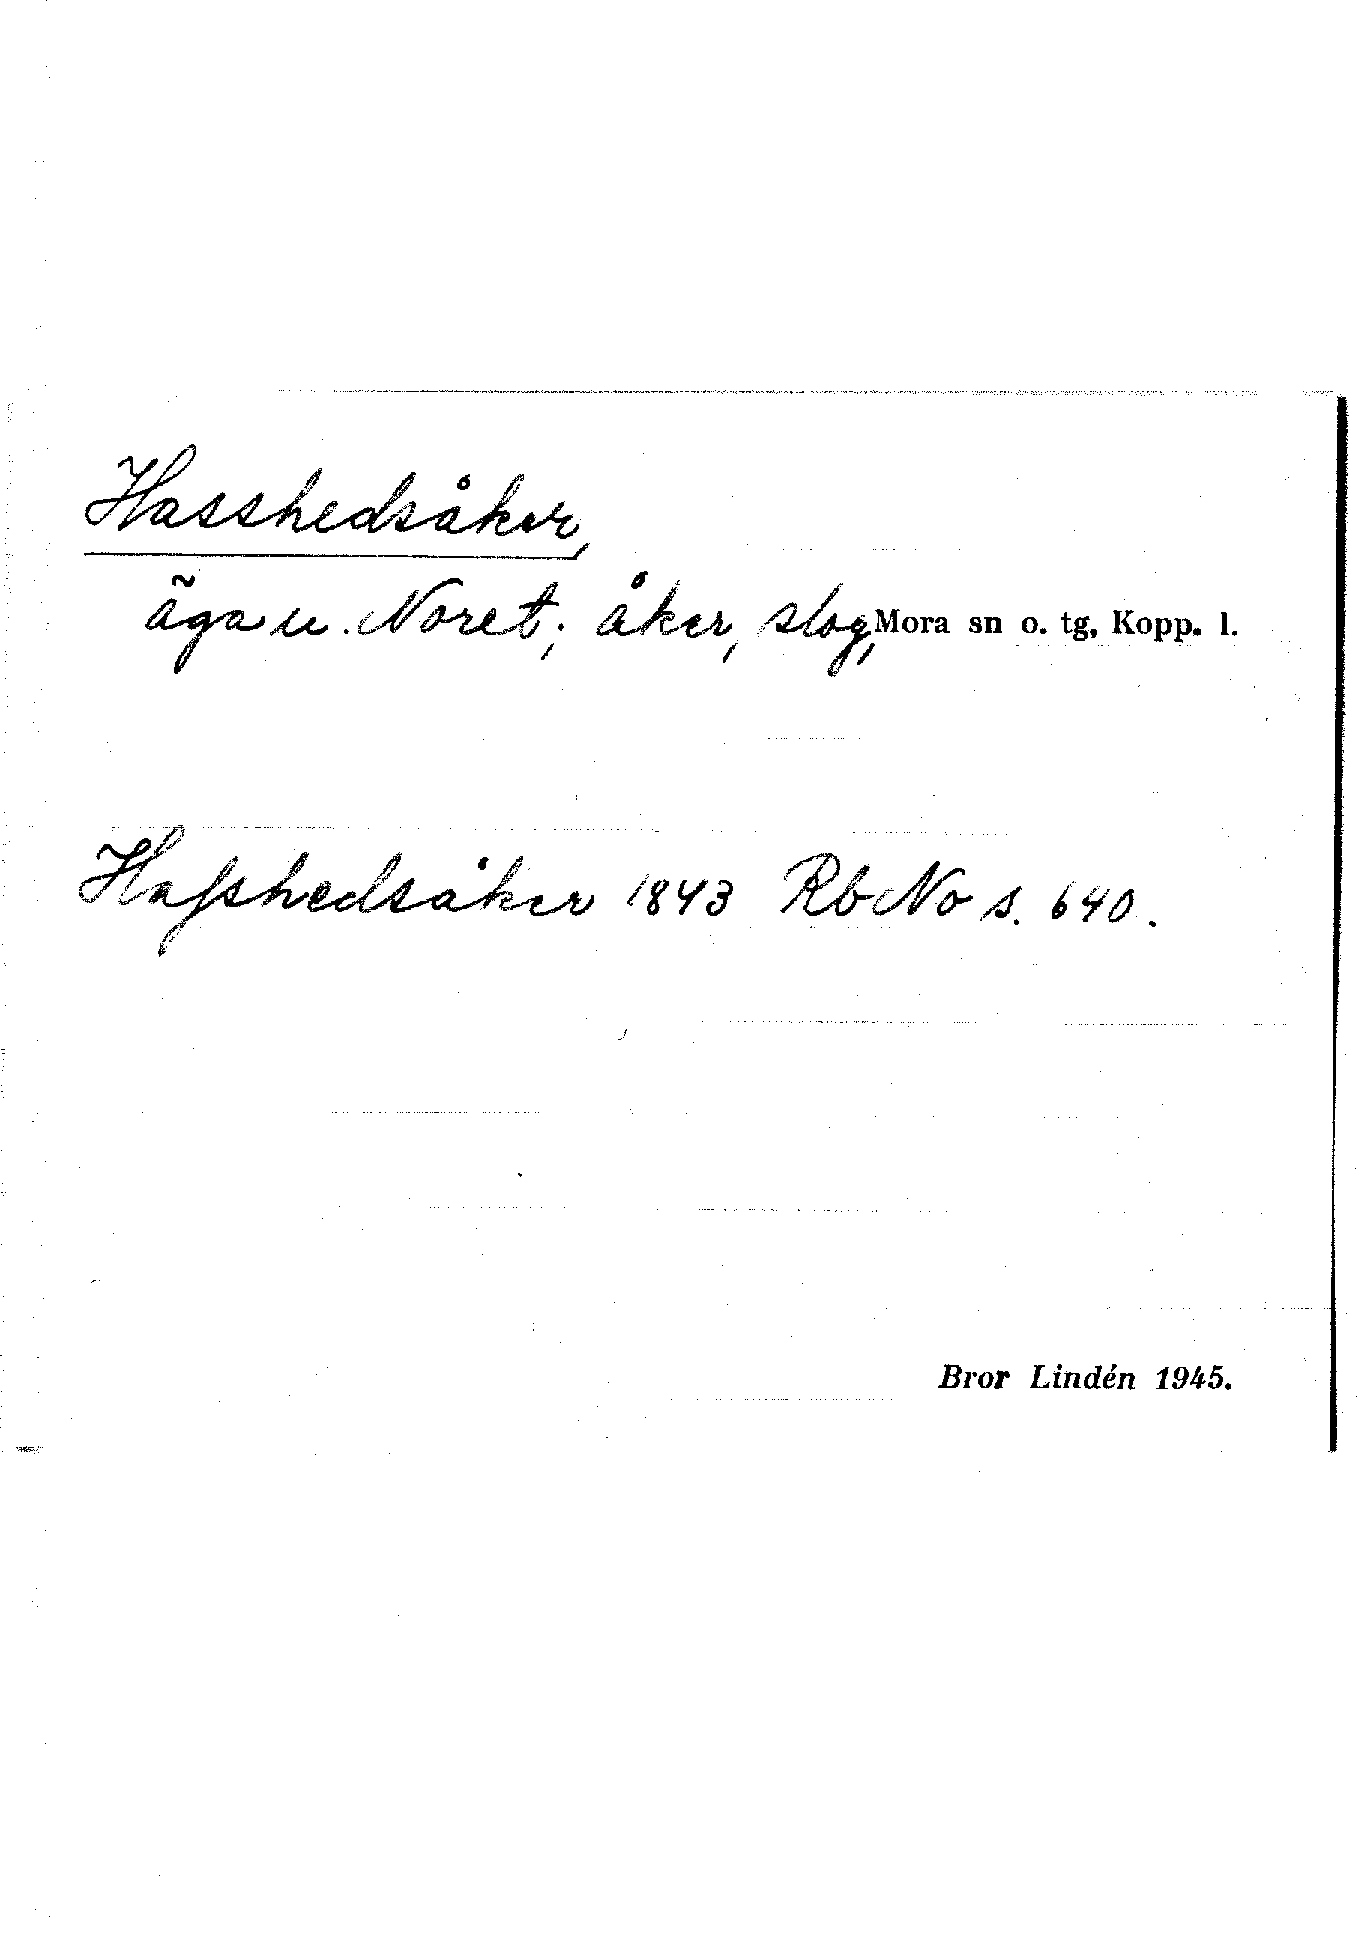 Hasshedsåker,
äga u. Noret; åker, slog, Mora sn o. tg, Kopp. l.
Haſshedsåker 1843 Rb No s. 640.
Bror Lindén 1945.